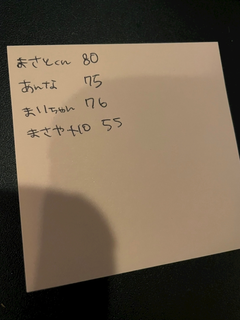 まさとくん 80
あんな 75
まいちゃん 76
まさや +10 55